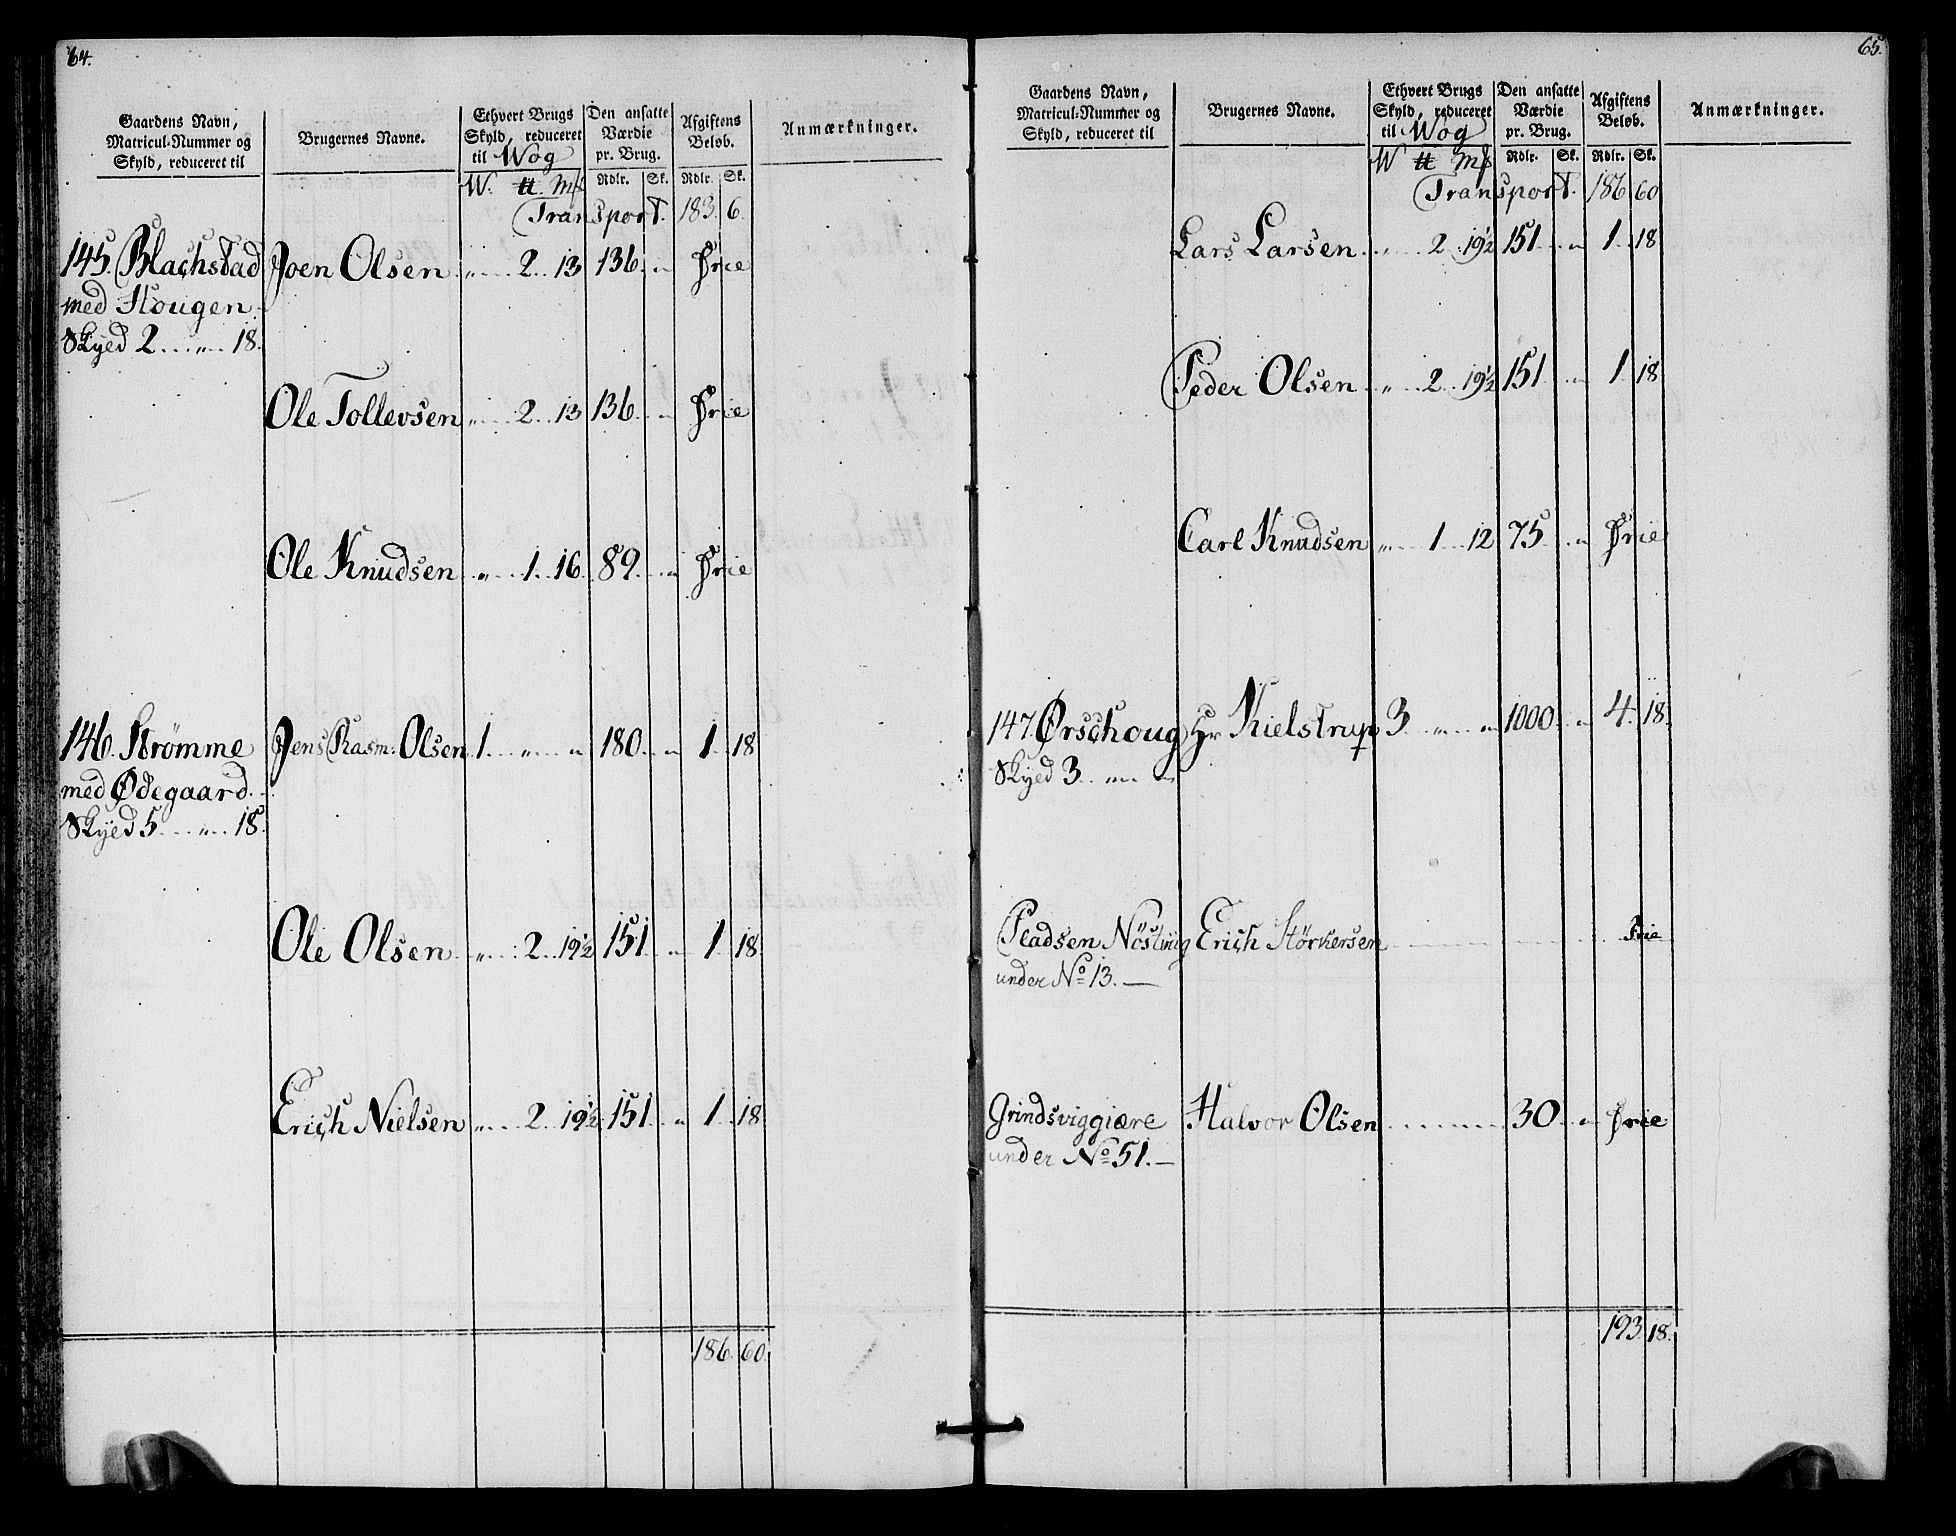 64.
Gaardens Navn, Matricul-Nummer og Skyld, reduceret til | Brugernes Navne. | Ethvert Brugs Skyld, reduceret til Wog | Den ansatte Værdie pr. Brug. | Afgiftens Beløb. | Anmærkninger.
W. ℔. Mk | Rdlr. | Sk. | Rdlr. | Sk.
Transport. 183. 6.
145. Blachstad Joen Olsen „ 2 13 136 „ Frie
med Hougen.
Skyed 2 „ 18.
Ole Tollevsen „ 2 13 136 „ Frie
Ole Knudsen „ 1 16 89 „ Frie
146. Strömme Jens Rasm: Olsen 1 „ „ 180 „ 1 18
med Ødegaard.
Skyed 5 „ 18.
Ole Olsen „ 2 19½ 151 „ 1 18.
Erich Nielsen „ 2 19½ 151 „ 1 18
186. 60.
65.
Gaardens Navn, Matricul-Nummer og Skyld, reduceret til | Brugernes Navne. | Ethvert Brugs Skyld, reduceret til Wog | Den ansatte Værdie pr. Brug. | Afgiftens Beløb. | Anmærkninger.
W ℔ Mk | Rdlr. | Sk. | Rdlr. | Sk.
Transport. 186 60
Lars Larsen „ 2 19½ 151 „ 1 18
Peder Olsen „ 2 19½ 151 „ 1 18
Carl Knudsen „ 1 12 75 „ Frie
147. Ørschoug Hr Kielstrup 3 „ „ 1000 „ 4 18.
Skyed 3 „ „
Pladsen Nöstvig Erich Störkersen Frie
under No 13. —
Grindsviggiære Halvor Olsen 30 „ Frie
under No 51. —
193. 18.